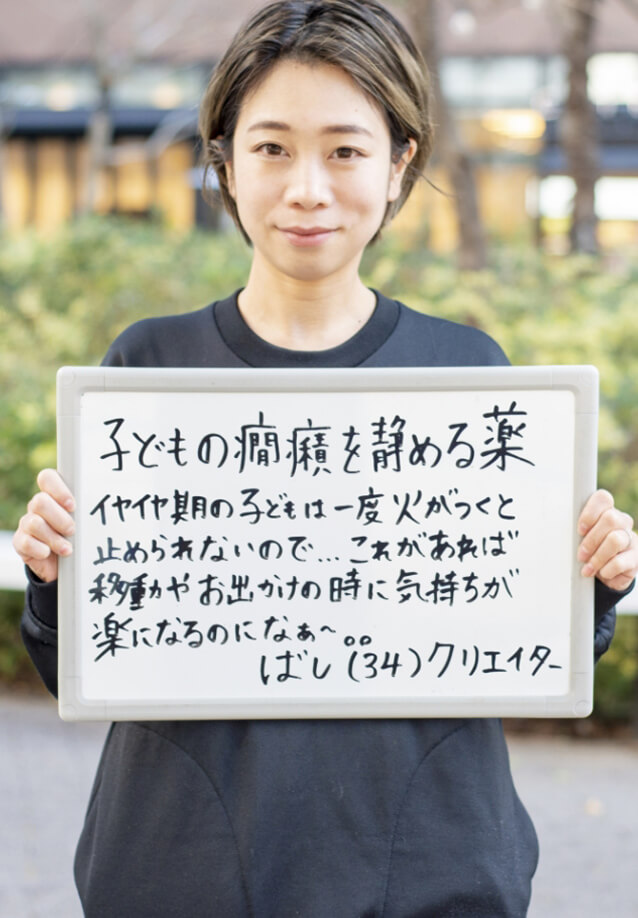 子どもの癇癪を静める薬
イヤイヤ期の子どもは一度火がつくと
止められないので...これがあれば
移動やお出かけの時に気持ちが
楽になるのになぁ〜。。
ばし(34)クリエイター